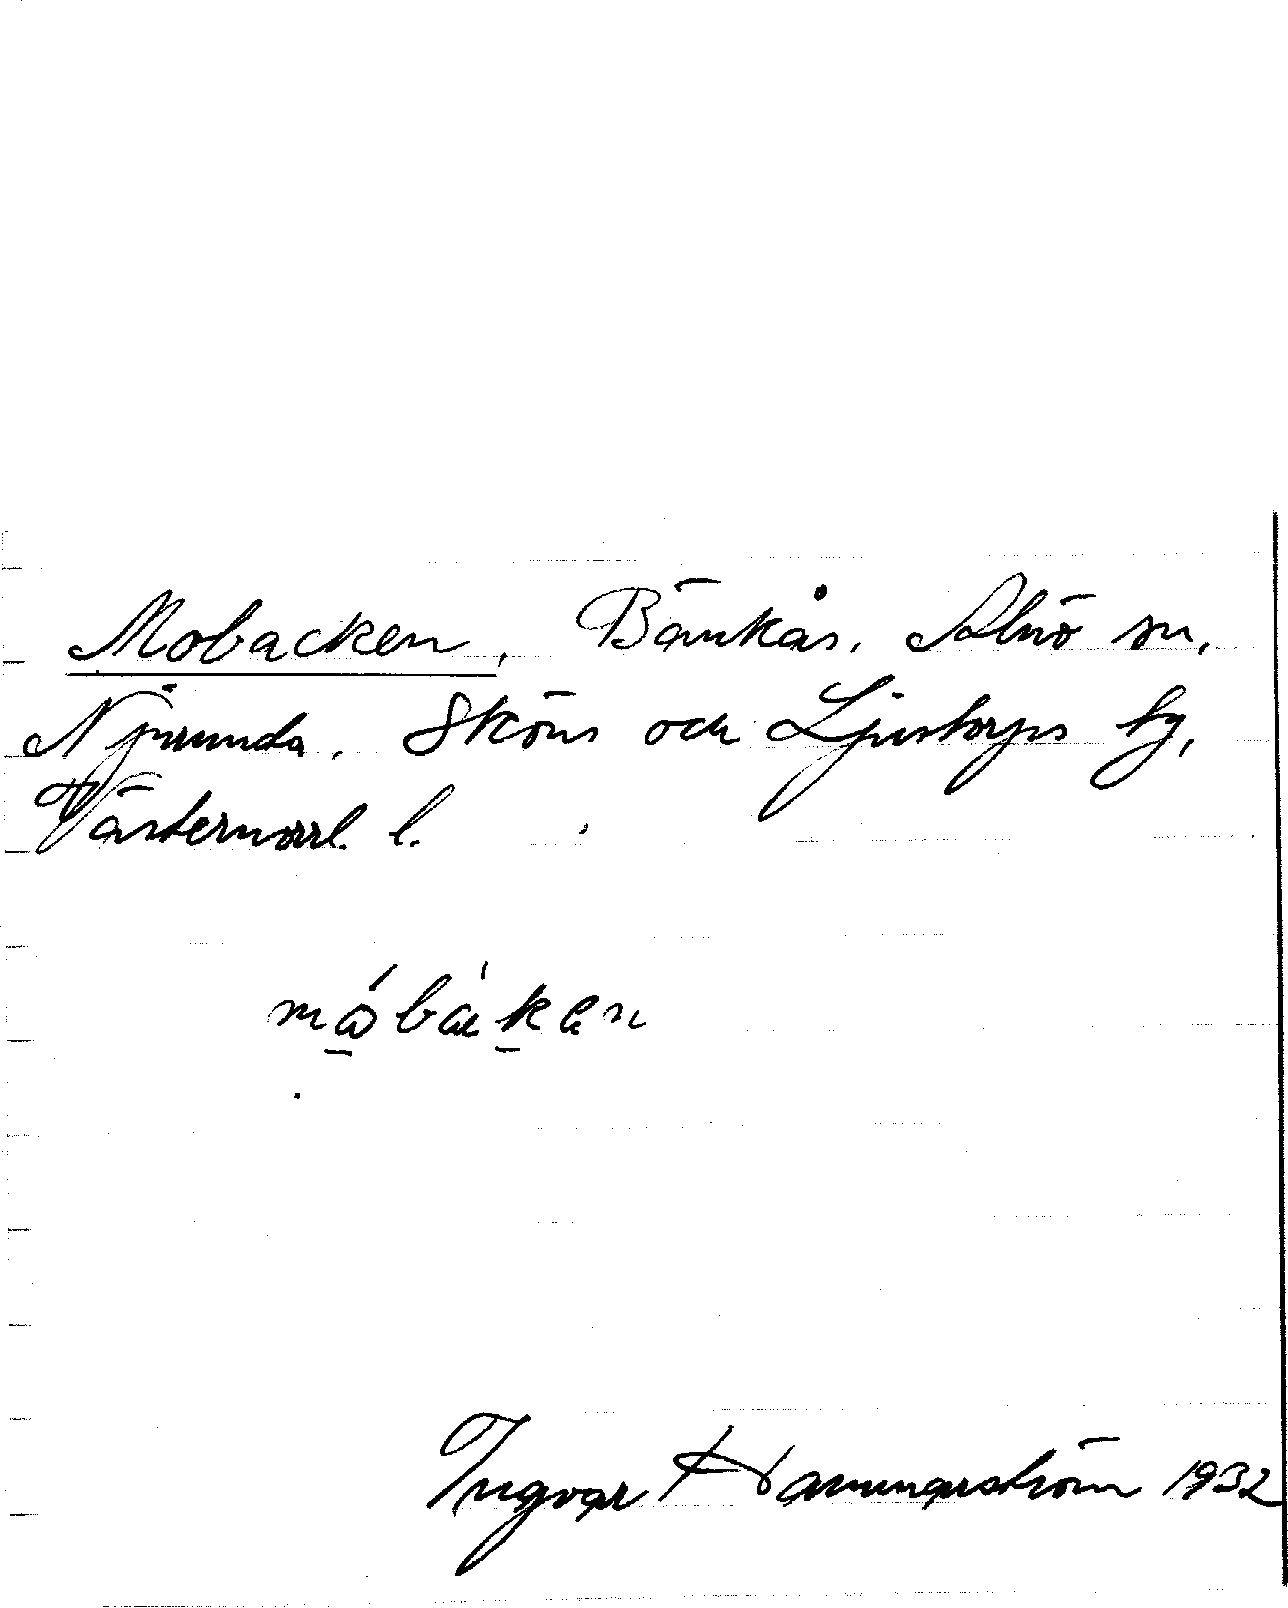 Mobacken, Bänkås, Alnö sn,
Njurunda, Sköns och Ljustorps tg,
Västernorrl. l.
måbaken
Ingvar Hammarström 1932